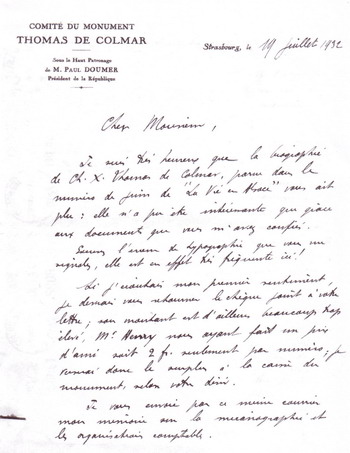 COMITÉ DU MONUMENT
THOMAS DE COLMAR
Sous le Haut Patronage
de M. PAUL DOUMER
Président de la République
Strasbourg, le 19 Juillet 1932
Cher Monsieur,
Je suis très heureux que la biographie
de Ch. X. Thomas de Colmar, parue dans le
numéro de juin de "La Vie en Alsace" vous ait
plu : elle n'a pu être intéressante que grâce
aux documents que vous m'avez confiés.
l'erreur de typographie que vous me
signalez, elle est en effet très fréquente ici !
Si j'écoutais mon premier sentiment,
je devrais vous retourner le chèque joint à votre
lettre ; son montant est d'ailleurs beaucoup trop
élevé, Mr Henry nous ayant fait un prix
d'ami soit 2 fr. seulement par numéro ; je
verserai donc le surplus à la caisse du
monument, selon votre désir.
Je vous envoie par ce même courrier
mon mémoire sur la mécanographie et
les organisations comptables.